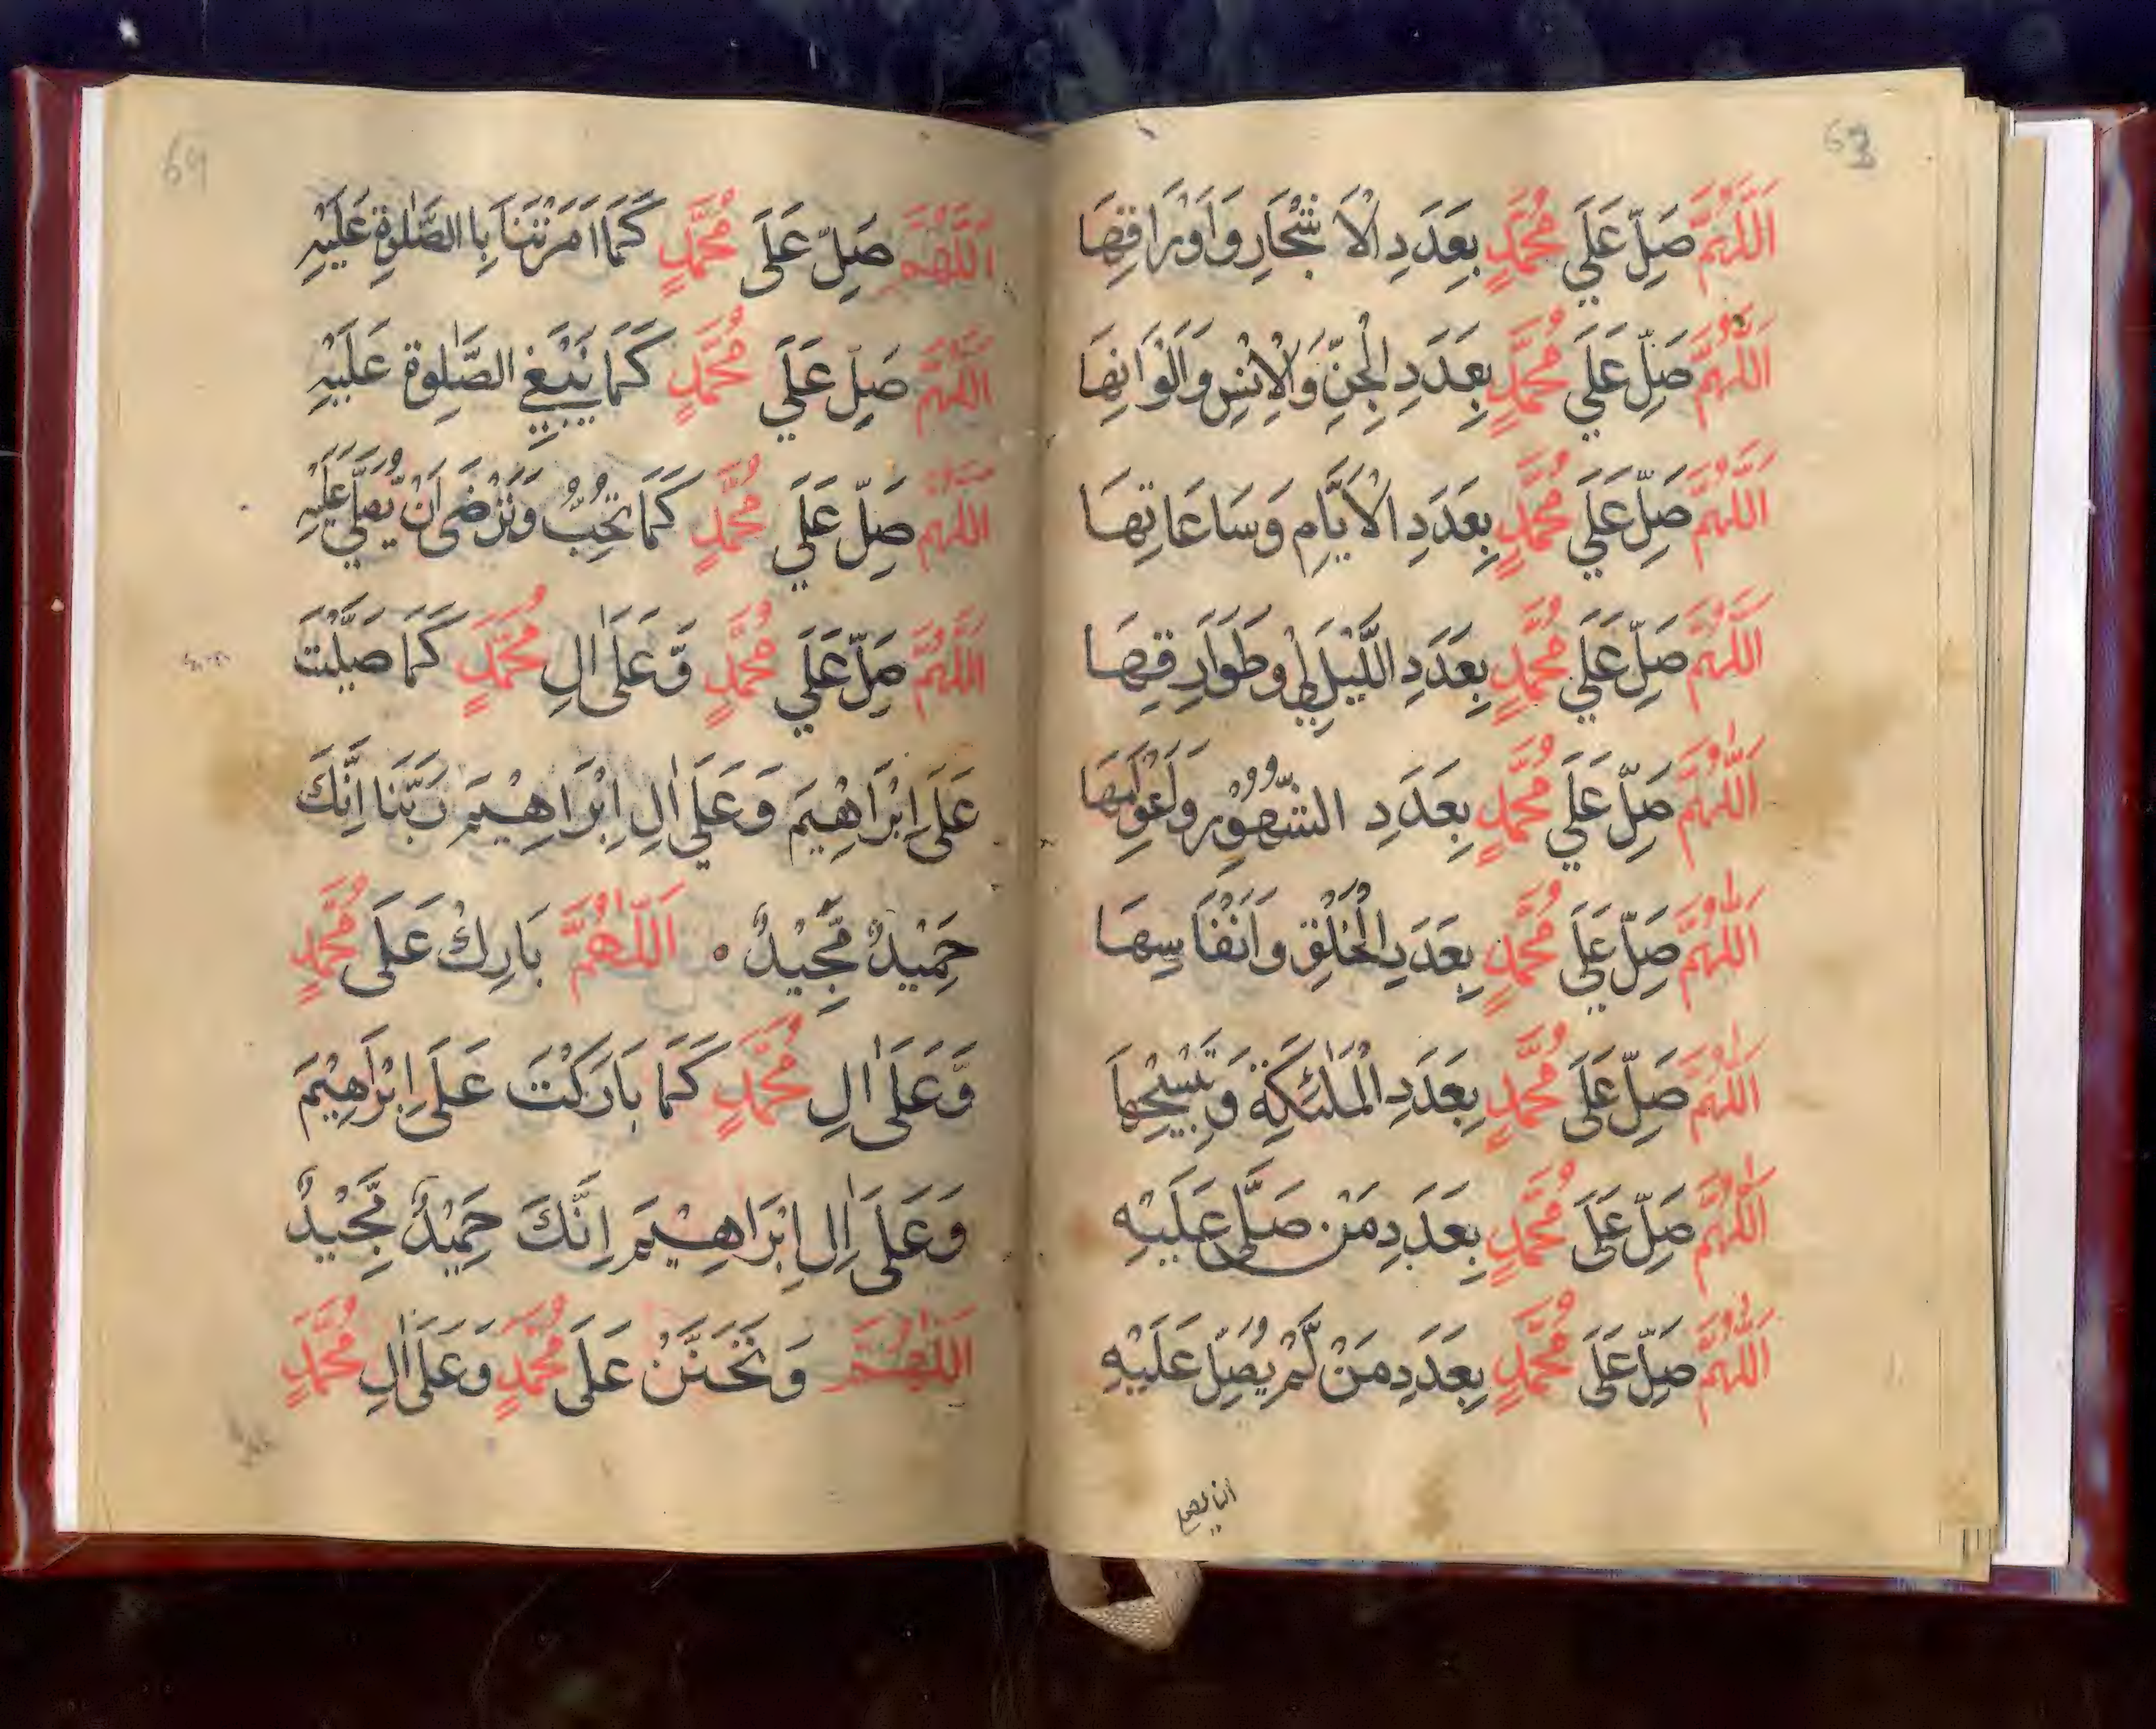 63
اَللّٰهُمَّ صَلِّ عَلَي مُحَمَّدٍ بِعَدَدِ الْاَشْجَارِ وَاَوْرَاقِهَا
اَللّٰهُمَّ صَلِّ عَلَي مُحَمَّدٍ بِعَدَدِ الْجِنِّ وَالْاِنْسِ وَاَلْوَانِهَا
اَللّٰهُمَّ صَلِّ عَلَي مُحَمَّدٍ بِعَدَدِ الْاَيَّامِ وَسَاعَاتِهَا
اَللّٰهُمَّ صَلِّ عَلَي مُحَمَّدٍ بِعَدَدِ اللَّيْلِي وَطَوَارِقِهَا
اَللّٰهُمَّ صَلِّ عَلَي مُحَمَّدٍ بِعَدَدِ الشُّهُوْرِ
اَللّٰهُمَّ صَلِّ عَلَي مُحَمَّدٍ بِعَدَدِ الْخُلُقِ وَاَنْفَاسِهَا
اَللّٰهُمَّ صَلِّ عَلَى مُحَمَّدٍ بِعَدَدِ الْمَلٰئِكَةِ وَتَسْبِيْحِهَا
اَللّٰهُمَّ صَلِّ عَلَى مُحَمَّدٍ بِعَدَدِ مَنْ صَلَّى عَلَيْهِ
اَللّٰهُمَّ صَلِّ عَلَى مُحَمَّدٍ بِعَدَدِ مَنْ لَّمْ يُصَلِّ عَلَيْهِ
69
اَللّٰهُمَّ صَلِّ عَلَى مُحَمَّدٍ كَمَا اَمَرْتَنَا بِا الصَّلٰوةِ عَلَيْهِ
اَللّٰهُمَّ صَلِّ عَلَي مُحَمَّدٍ كَمَا يَنْبَغِي الصَّلٰوة عَلَيْهِ
اَللّٰهُمَّ صَلِّ عَلَي مُحَمَّدٍ كَمَا تُحِبُّ وَتَرْضَى اَنْ يُّصَلِّي عَلَيْهِ
اَللّٰهُمَّ صَلِّ عَلَي مُحَمَّدٍ وَّعَلَى اٰلِ مُحَمَّدٍ كَمَا صَلَّيْتَ
عَلَى اِبْرَاهِيْمَ وَعَلَي اٰلِ اِبْرَاهِيْمَ رَبَّنَا اِنَّكَ
حَمِيْدٌ مَّجِيْدٌ ٥ اَللّٰهُمَّ بَارِكْ عَلَى مُحَمَّدٍ
وَّعَلَى اٰلِ مُحَمَّدٍ كَمَا بَارَكْتَ عَلَى اِبْرَاهِيْمَ
وَعَلَى اٰلِ اِبْرَاهِيْمَ اِنَّكَ حَمِيْدٌ مَّجِيْدٌ
اَللّٰهُمَّ وَتَحَنَّنْ عَلَى مُحَمَّدٍ وَعَلَى اٰلِ مُحَمَّدٍ